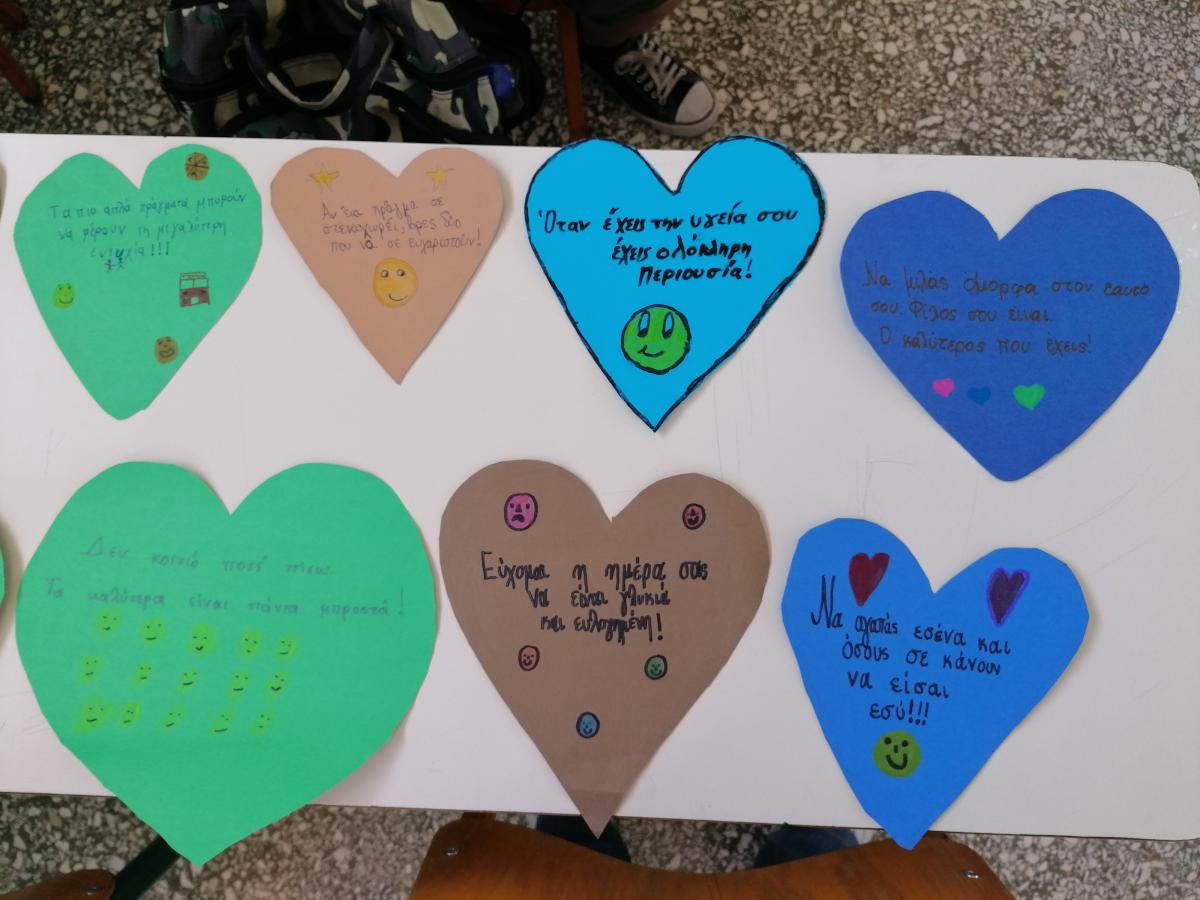 Τα πιο απλά πράγματα μπορούν
να φέρουν τη μεγαλύτερη
ευτυχία!!!
Αν ένα πράγμα σε
στεναχωρεί, βρες δύο
που να σε ευχαριστούν!
Όταν έχεις την υγεία σου
έχεις ολόκληρη
Περιουσία!
Να μιλάς όμορφα στον εαυτό
σου. Φίλος σου είναι
Ο καλύτερος που έχεις!
Δεν κοιτώ ποτέ πίσω
Τα καλύτερα είναι πάντα μπροστά!
Εύχομαι η ημέρα σας
να είναι γλυκιά
και ευλογημένη!
Να αγαπάς εσένα και
όσους σε κάνουν
να είσαι
εσύ!!!